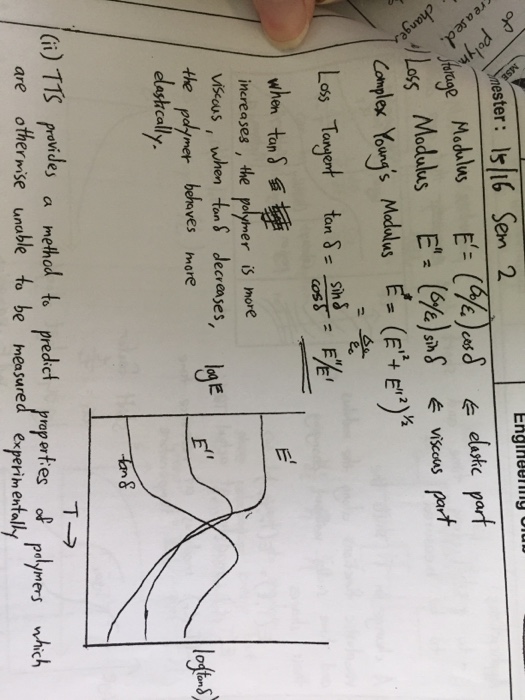 MSE
mester: 15/16 Sem 2
Engineering
reased polym
change
Storage Modulus E' = (σ₀/ε₀) cosδ ⇐ elastic part
Loss Modulus E" = (σ₀/ε₀) sinδ ⇐ viscous part
Complex Young's Modulus E* = (E'² + E"²)^½
= σ₀/ε₀
Loss Tangent tan δ = sinδ/cosδ = E"/E'
when tan δ
increases, the polymer is more
viscous, when tanδ decreases,
the polymer behaves more
elastically.
log E
E'
E"
tanδ
T →
log(tanδ)
(ii) TTS provides a method to predict properties of polymers which
are otherwise unable to be measured experimentally